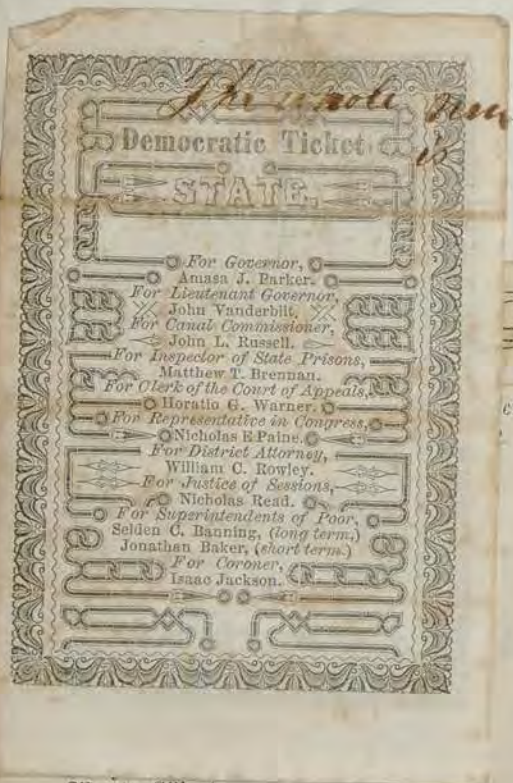 The whole num
is
Democratic Ticket
STATE.
For Governor,
Amasa J. Parker.
For Lieutenant Governor,
John Vanderbilt.
For Canal Commissioner,
John L. Russell.
For Inspector of State Prisons,
Matthew T. Brennan.
For Clerk of the Court of Appeals,
Horatio G. Warner.
For Representative in Congress,
Nicholas E Paine.
For District Attorney,
William C. Rowley.
For Justice of Sessions,
Nicholas Read.
For Superintendents of Poor,
Selden C. Banning, (long term,)
Jonathan Baker, (short term.)
For Coroner,
Isaac Jackson.